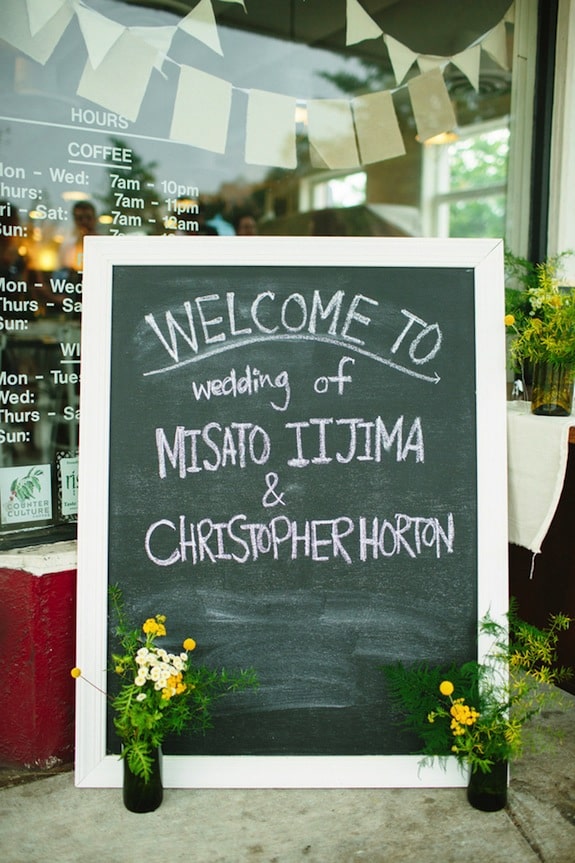 HOURS
COFFEE
Mon - Wed: 7am - 10pm
Thurs: 7am - 11pm
Fri - Sat: 7am - 12am
Sun:
Mon - Wed
Thurs - Sa
Sun:
WI
Mon - Tues
Wed:
Thurs - Sa
Sun:
COUNTER
CULTURE
WELCOME TO
wedding of
MISATO IIJIMA
&
CHRISTOPHER HORTON